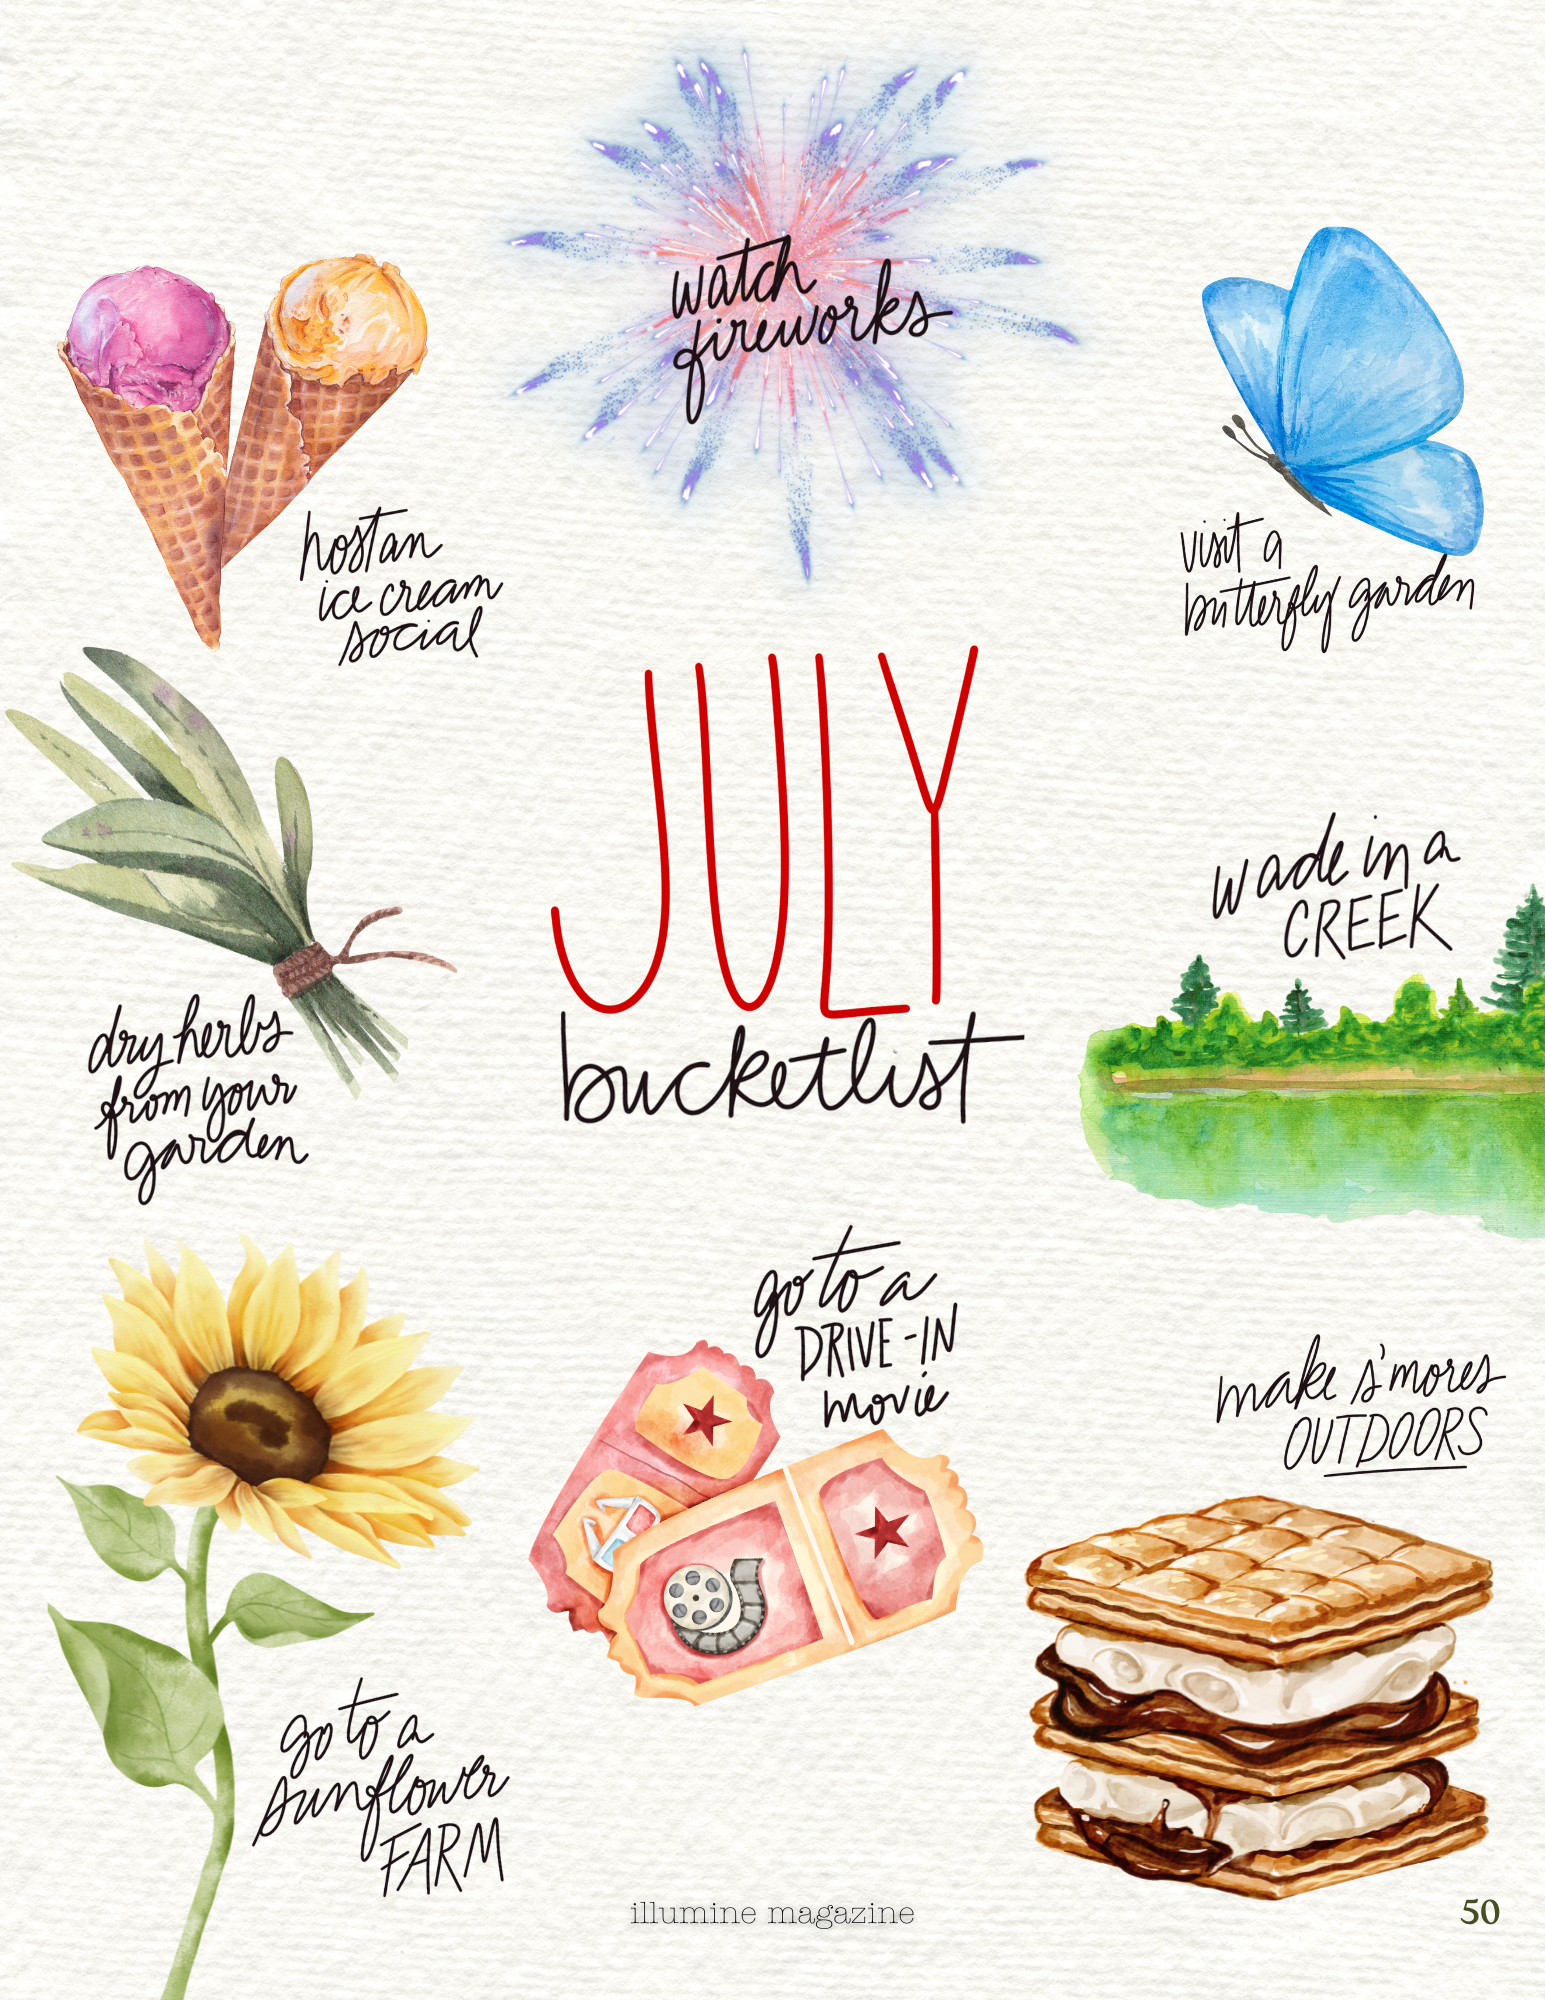 watch
fireworks
host an
ice cream
social
visit a
butterfly garden
JULY
bucketlist
wade in a
CREEK
dry herbs
from your
garden
go to a
DRIVE-IN
movie
make s'mores
OUTDOORS
go to a
sunflower
FARM
illumine magazine
50